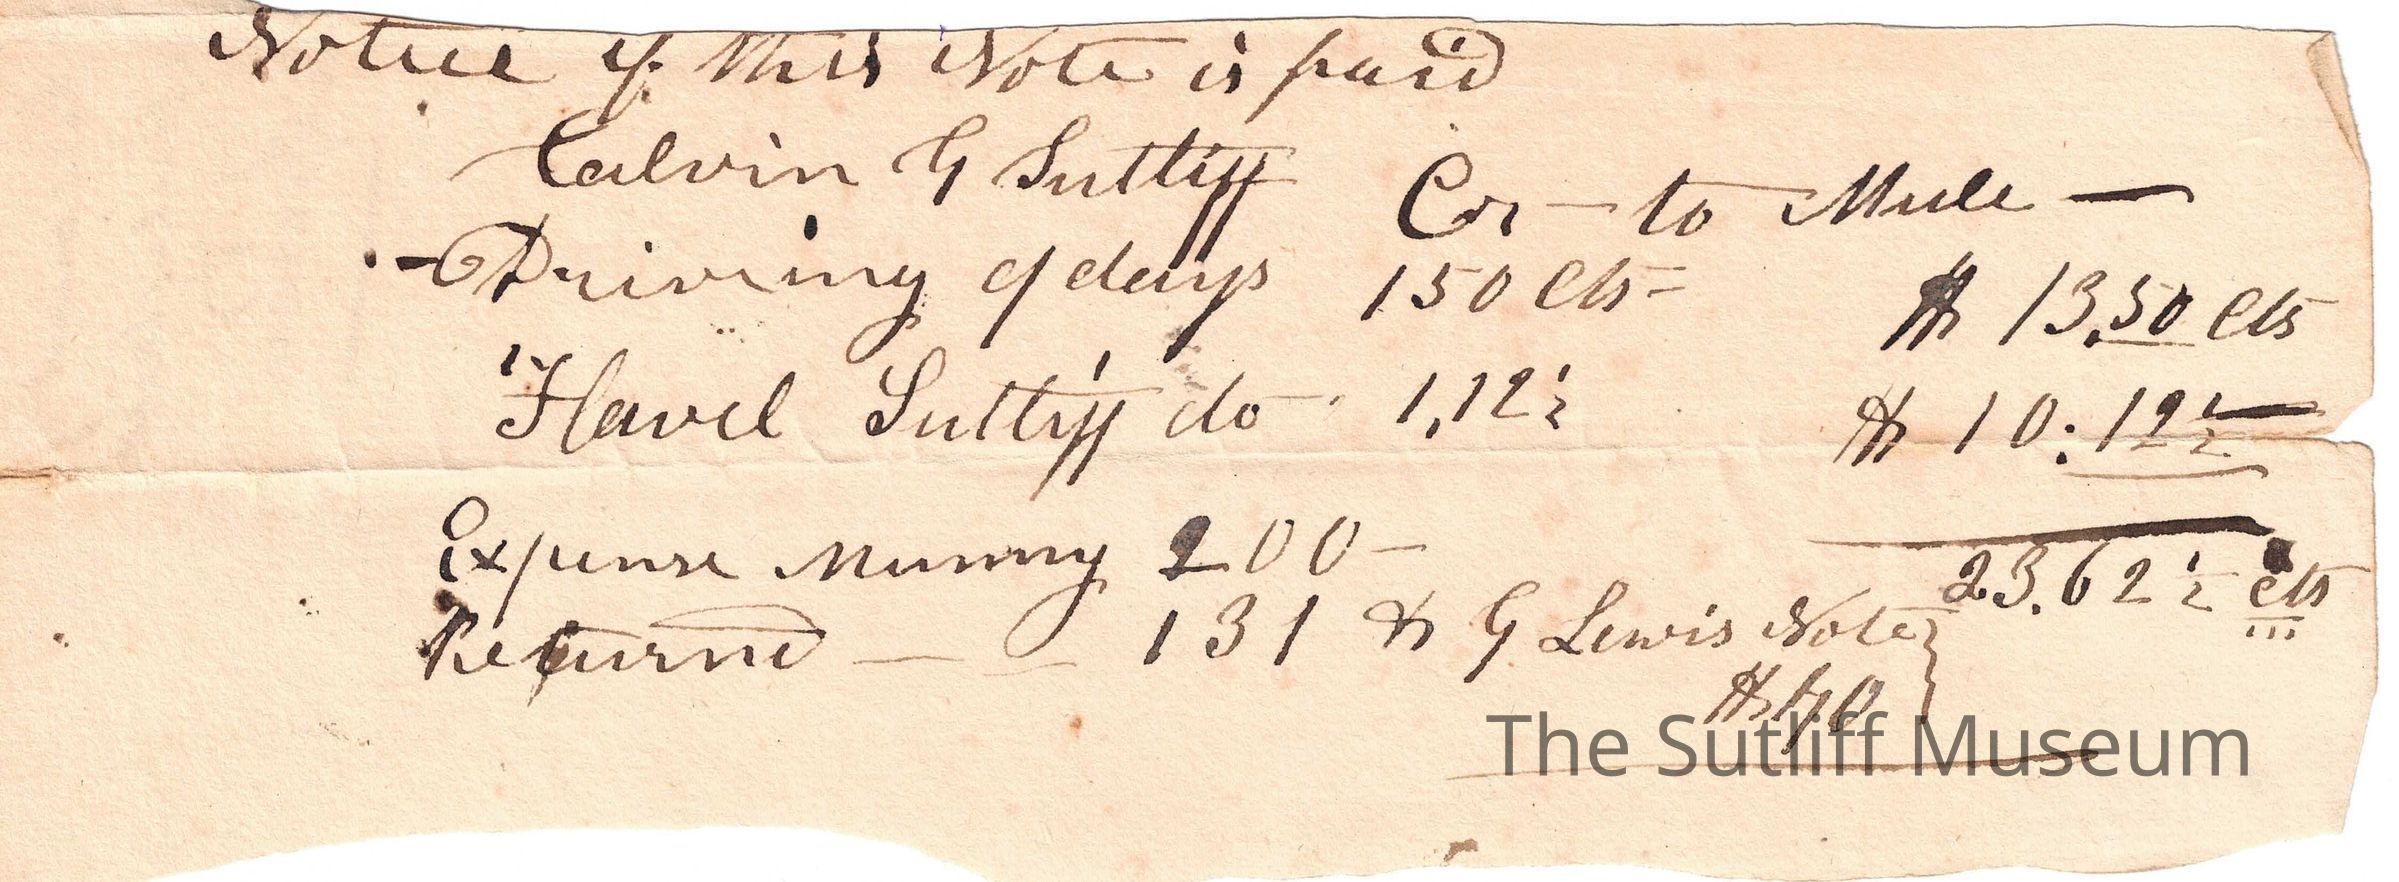 Notice if this Note is paid
Calvin G Sutliff Cr - to Mule —
- Driving 9 days 150 Cts = $ 13.50 Cts
Flavel Sutliff do 1,12½ $ 10.12½
Expense Munny 200 - 23.62½ cts
Returnd — 131 $ G Lewis Note
The Sutliff Museum